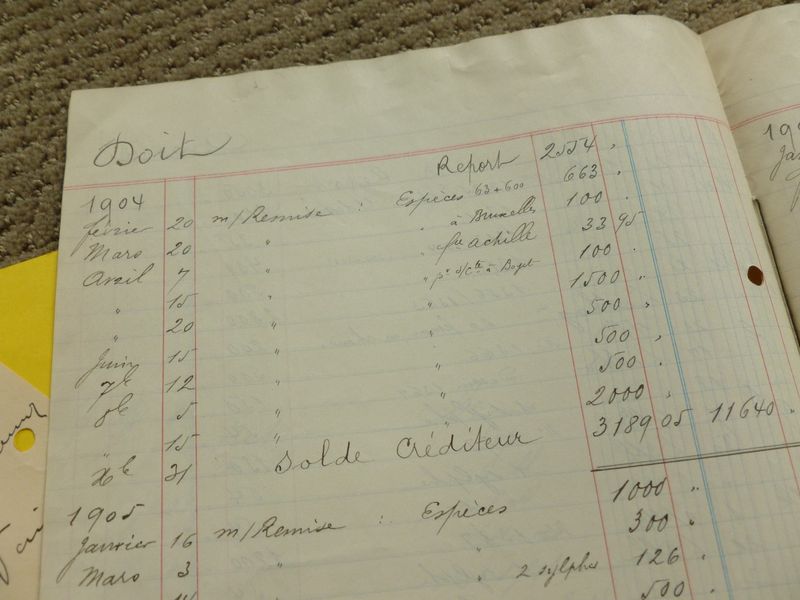 Doit
Report 2554 "
1904
février 20 m/Remise : Espèces 63+600 663 "
Mars 20 " " à Bruxelles 100 "
Avril 7 " " fre Achille 33 95
" 15 " " pr s/cte à 100 "
" 20 " " 1500 "
Juin 15 " " 500 "
7bre 12 " " 500 "
8bre 5 " " 500 "
" 15 " " 2000 "
Xbre 31 Solde Créditeur 3189 05 11640 "
1905
Janvier 16 m/Remise : Espèces 1000 "
Mars 3 " " 300 "
" 2 sylphes 126 "
500 "
190
Ja